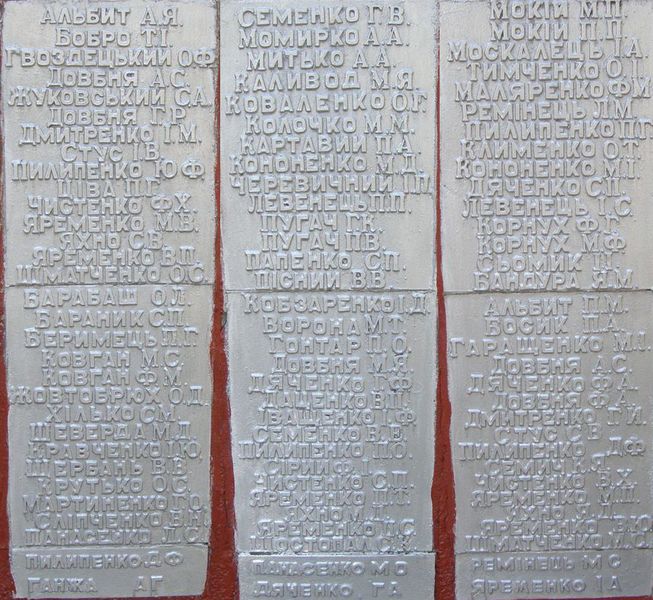 АЛЬБИТ А.Я.
БОБРО Т.І.
ГВОЗДЕЦЬКИЙ О.Ф.
ДОВБНЯ А.С.
ЖУКОВСЬКИЙ С.А.
ДОВБНЯ Г.Р.
ДМИТРЕНКО І.М.
СТУС І.В.
ПИЛИПЕНКО Ю.Ф.
ШВА П.Г.
ЧИСТЕНКО Ф.Х.
ЯРЕМЕНКО М.В.
ЯХНО С.В.
ЯРЕМЕНКО В.П.
ШМАТЧЕНКО О.С.
БАРАБАШ О.Л.
БАРАНИК С.П.
БЕРИМЕЦЬ П.Г.
КОВГАН М.С.
КОВГАН Ф.М.
ЖОВТОБРЮХ О.Д.
ХІЛЬКО С.М.
ШЕВЕРДА М.Д.
КРАВЧЕНКО І.Ю.
ЩЕРБАНЬ В.В.
КРУТЬКО О.С.
МАРТИНЕНКО Г.О.
СЛІПЧЕНКО В.Н.
ПАНАСЕНКО Д.С.
ПИЛИПЕНКО Д Ф
ГАНЖА А Г
СЕМЕНКО Г.В.
МОМИРКО А.А.
МИТЬКО А.А.
КАЛИВОД М.Я.
КОВАЛЕНКО О.Г.
КОЛОЧКО М.М.
КАРТАВИЙ П.А.
КОНОНЕНКО М.Д.
ЧЕРЕВИЧНИЙ П.П.
ЛЕВЕНЕЦЬ П.П.
ПУГАЧ Г.К.
ПУГАЧ П.В.
ПАПЕНКО С.П.
ПІСНИЙ В.В.
КОБЗАРЕНКО І.Д.
ВОРОНА М.Т.
ГОНТАР П.О.
ДОВБНЯ М.Я.
ДЯЧЕНКО Г.Ф.
ДАЦЕНКО В.П.
ІВАЩЕНКО І.Ф.
СЕМЕНКО В.В.
ПИЛИПЕНКО П.О.
СІРИЙ Ф.І.
ЧИСТЕНКО С.П.
ЯРЕМЕНКО П.Т.
ЯХНО М.
ЯРЕМЕНКО І.С.
ШОСТОПАЛ С.К.
ПАНАСЕНКО М О
ДЯЧЕНКО Г А
МОКІЙ М.П.
МОКІЙ П.П.
МОСКАЛЕЦЬ І.А.
ТИМЧЕНКО О.І.
МАЛЯРЕНКО Ф.И.
РЕМІНЕЦЬ Л.М.
ПИЛИПЕНКО П.Г.
КЛИМЕНКО О.Т.
КОНОНЕНКО М.І.
ДЯЧЕНКО С.П.
ЛЕВЕНЕЦЬ І.С.
КОРНУХ Ф.І.
КОРНУХ М.Ф.
СЬОМИК І.І.
БАНДУРА Я.М.
АЛЬБИТ П.М.
БОСИК П.А.
ГАРАЩЕНКО М.І.
ДОВБНЯ А.С.
ДЯЧЕНКО Ф.А.
ДОВБНЯ Ф.А.
ДМИТРЕНКО Г.И.
СТУС С.В.
ПИЛИПЕНКО Д.Ф.
СЕМИЧ К.Я.
ЧИСТЕНКО В.Х.
ЯРЕМЕНКО М.П.
ЯХНО Я.Д.
ЯРЕМЕНКО В.Ю.
ШМАТЧЕНКО М.С.
РЕМІНЕЦЬ М С
ЯРЕМЕНКО І А